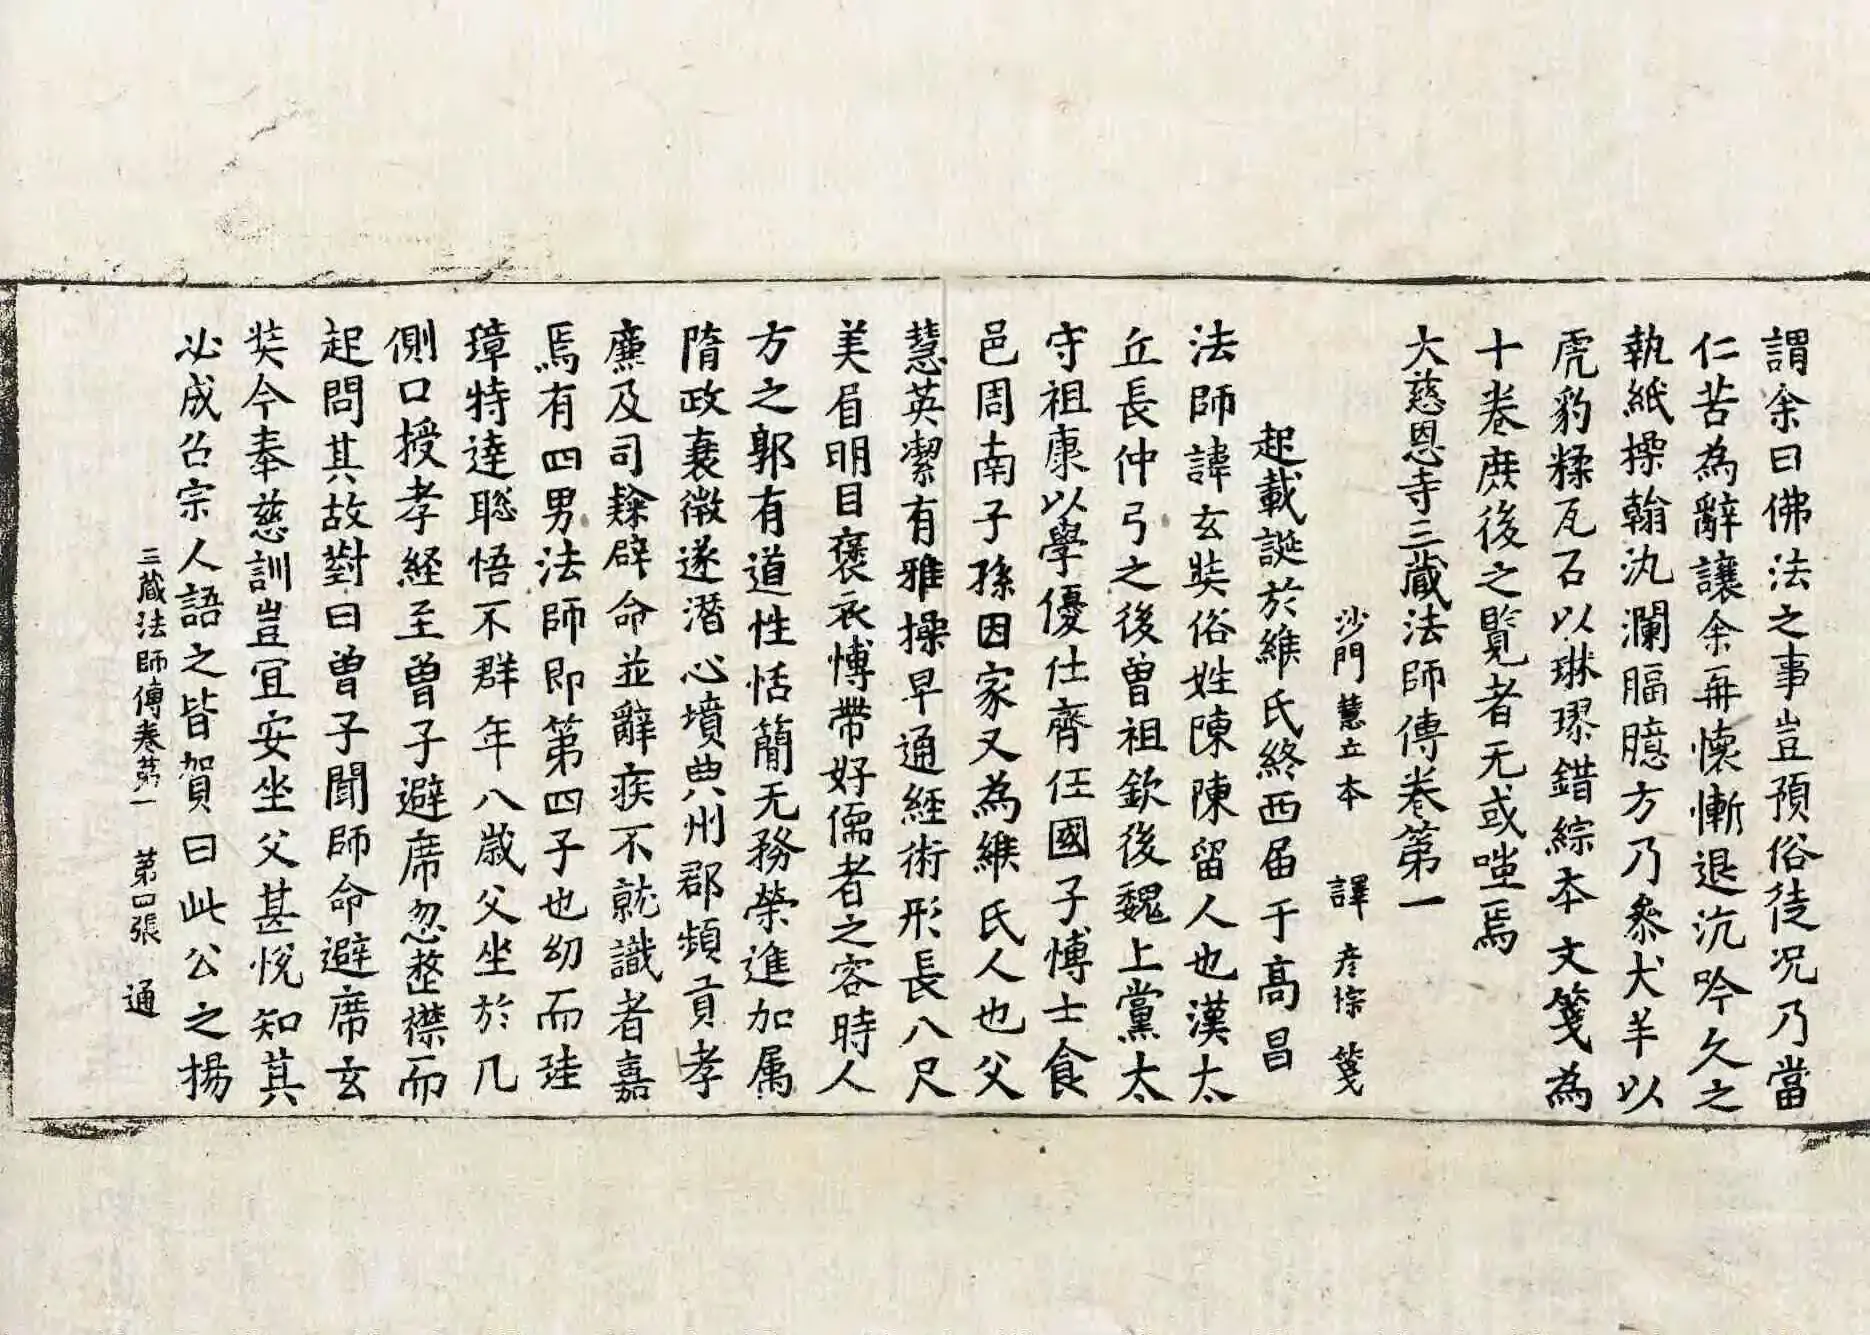 謂余曰佛法之事豈預俗徒況乃當
仁苦為辭讓余再懷慚退沉吟久之
執紙操翰汍瀾膈臆方乃叅犬羊以
虎豹糅瓦石以琳璆錯綜本文箋為
十卷庶後之覽者无或嗤焉
大慈恩寺三藏法師傳卷第一
沙門慧立本 譯彥悰箋
起載誕於緱氏終西届于高昌
法師諱玄奘俗姓陳陳留人也漢太
丘長仲弓之後曾祖欽後魏上黨太
守祖康以學優仕齊任國子愽士食
邑周南子孫因家又為緱氏人也父
慧英潔有雅操早通經術形長八尺
美眉明目褒衣愽帶好儒者之容時人
方之郭有道性恬簡无務榮進加属
隋政衰微遂潛心墳典州郡頻貢孝
廉及司隸辟命並辭疾不就識者嘉
焉有四男法師即第四子也幼而珪
璋特達聡悟不群年八歲父坐於几
側口授孝経至曾子避席忽整襟而
起問其故對曰曾子聞師命避席玄
奘今奉慈訓豈宜安坐父甚悅知其
必成召宗人語之皆賀曰此公之揚
三藏法師傳卷第一 第四張 通